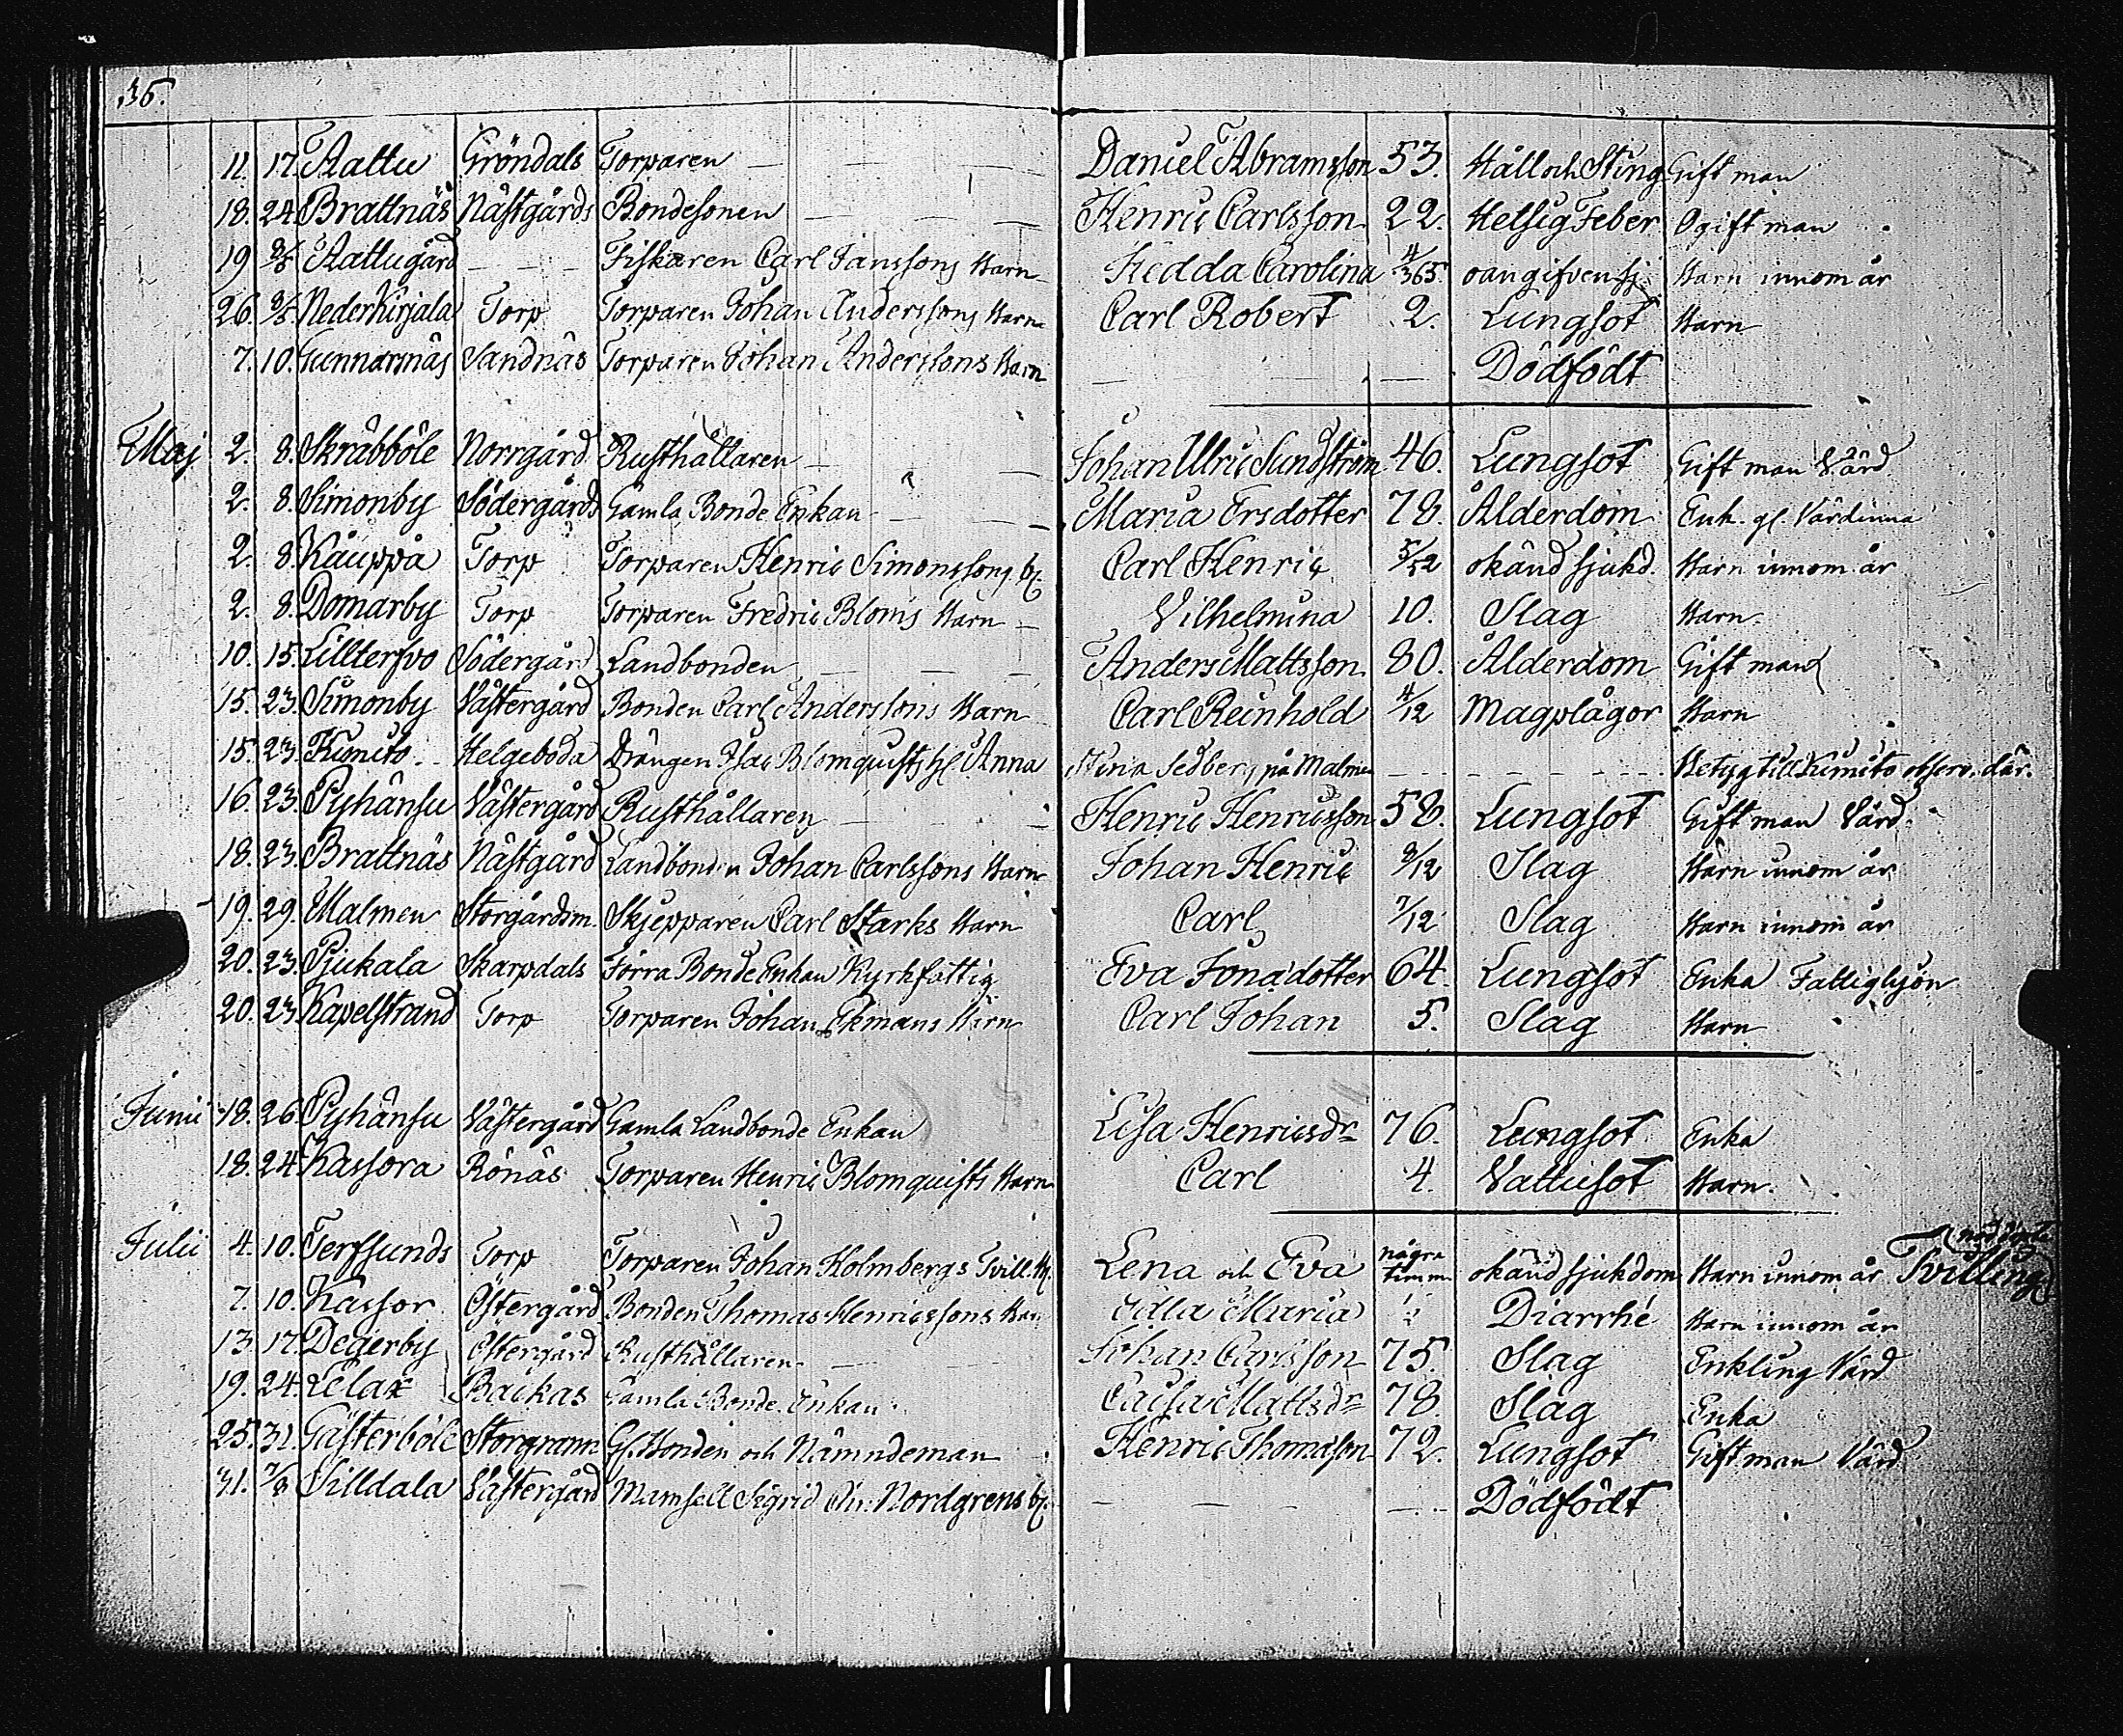 36.
11. 17. Attu Gröndals Torparen Daniel Abramsson 53. Håll och Sting Gift man
18. 24. Brattnäs Nästgårds Bondesonen Henric Carlsson 22. Hetsig Feber Ogift man
19 Attugård Fiskaren Carl Janssons Barn Hedda Carolina 4/365 oangifven sj. Barn innom år
26. Nederkirjala Torp Torparen Johan Anderssons Barn Carl Robert 2. Lungsot Barn
7. 10. Gunnarsnäs Sandnäs Torparen Johan Anderssons Barn Dödfödt
Maj 2. 8. Skräbböle Norrgård Rusthållaren Johan Ulric Sundström 46. Lungsot Gift man Värd
2. 8. Simonby Södergårds Gamla Bonde Enkan Maria Ersdotter 78. Ålderdom Enk. gl. Värdinna
2. 8. Kåuppå Torp Torparen Henric Simonssons b. Carl Henric 5/12 okänd sjukd. Barn innom år
2. 8. Domarby Torp Torparen Fredric Bloms Barn Vilhelmina 10. Slag Barn.
10. 15. Lillterfvo Södergård Landbonden Anders Mattsson 80. Ålderdom Gift man
15. 23. Simonby Västergård Bonden Carl Anderssons Barn Carl Reinhold 4/12 Magplågor Barn
15. 23. Kimito Helgeboda Drängen Isac Blomquists hl Anna Stina Sedberg på Malmen Betyg till Kimito observ. där.
16. 23. Pyhänsu Västergård Rusthållaren Henric Henricsson 58. Lungsot Gift man Värd.
18. 23. Brattnäs Nästgård Landbonden Johan Carlssons Barn Johan Henric 8/12 Slag Barn innom år
19. 29. Malmen Storgårdsm. Skjepparen Carl Starks Barn Carl 7/12 Slag Barn innom år
20. 23. Pjukala Skarpdals Förra Bonde Enkan Kyrkfattig Eva Jonadotter 64. Lungsot Enka Fattighjon
20. 23 Kapelstrand Torp Torparen Johan Ekmans Barn Carl Johan 5. Slag Barn
Junii 18. 26. Pyhänsu Västergård Gamla Landbonde Enkan Lisa Henricsdr 76. Lungsot Enka
18. 24 Kassora Rönäs Torparen Henric Blomquists Barn Carl 4. Vattusot Barn.
Julii 4. 10. Terfsunds Torp Torparen Johan Holmbergs Tvill. b. Lena och Eva några timm. okänd sjukdom Barn innom år Tvilling nöddöpta
7. 10. Kassor Östergård Bonden Thomas Henricssons Barn Edla Maria Diarrhé Barn innom år
13. 17. Degerby Östergård Rusthållaren Johan Carlsson 75. Slag Enkling Värd
19. 24. Lelax Backas Gamla Bonde Enkan Caisa Mattsdr 78. Slag Enka
25. 31. Gästerböle Storgrann Gl. Bonden och Nämndeman Henric Thomasson 72. Lungsot Gift man Värd
31. 7/8 Silldala Västergård Mamsell Sigrid Chr. Nordgrens b. Dödfödt